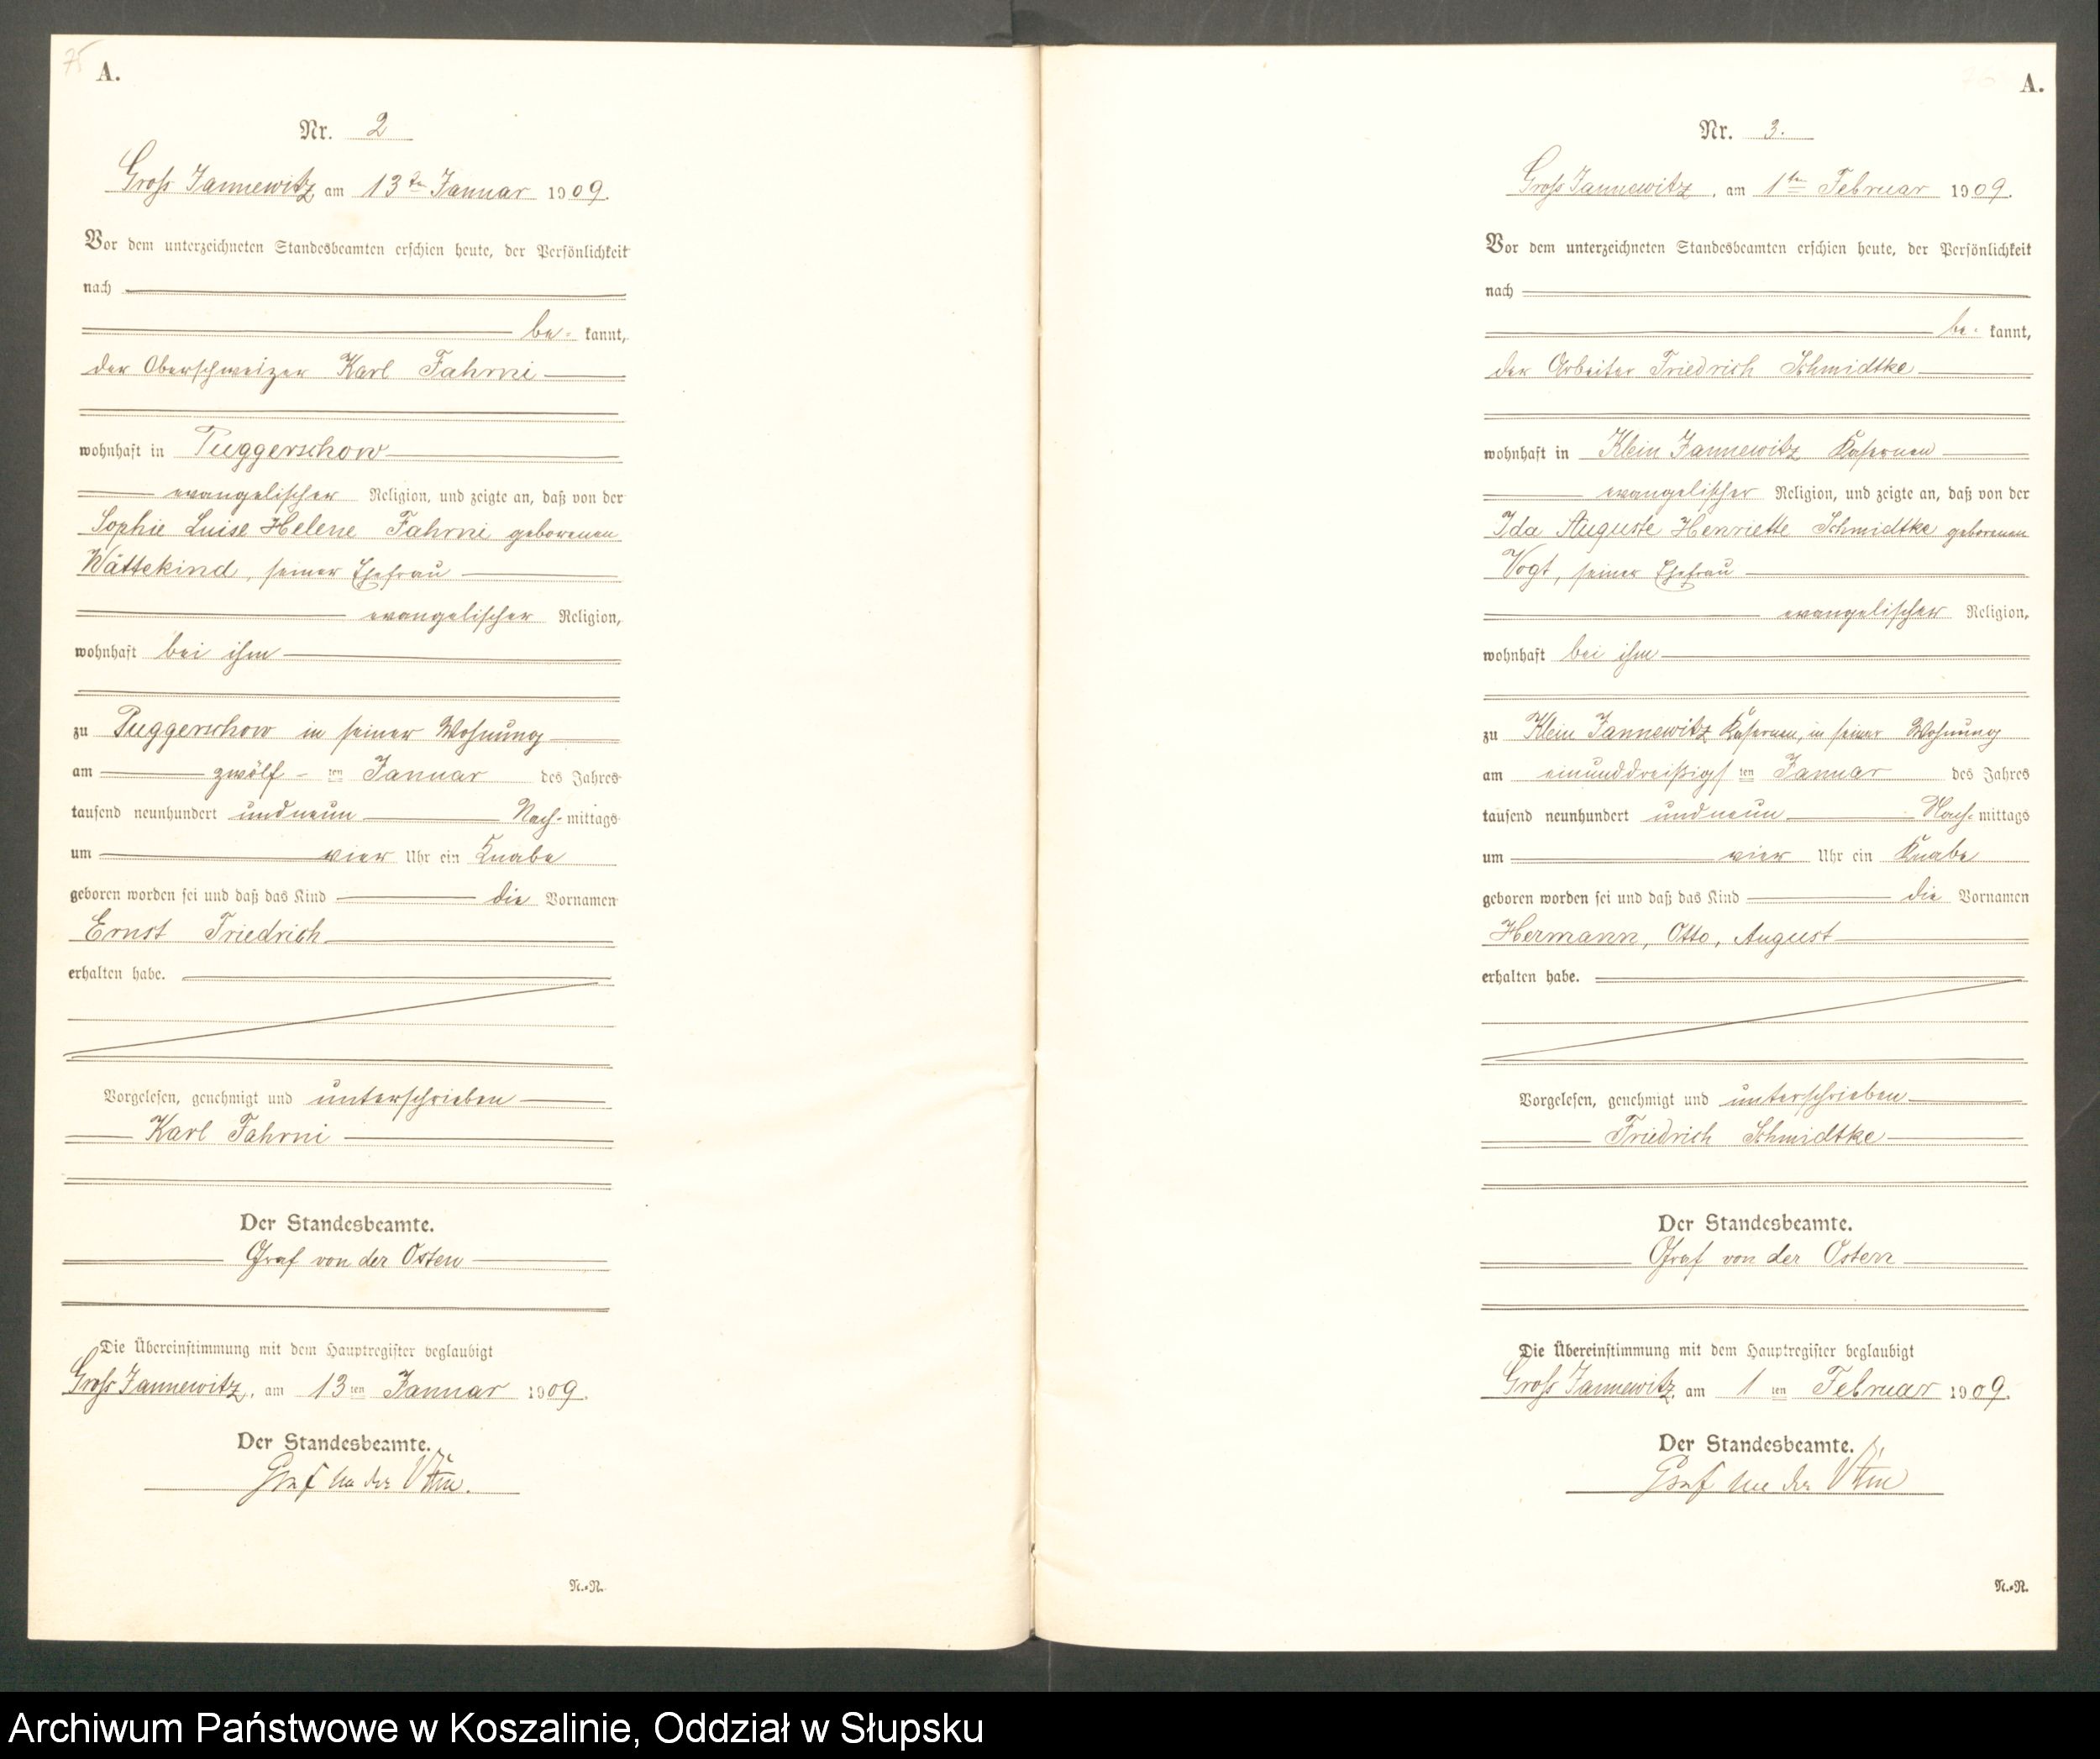 75
A.
Nr. 2
Gross Jannewitz, am 13ten Januar 1909.
Vor dem unterzeichneten Standesbeamten erschien heute, der Persönlichkeit
nach
be- kannt,
der Oberschweizer Karl Fahrni
wohnhaft in Puggerschow
evangelischer Religion, und zeigte an, daß von der
Sophie Luise Helene Fahrni geborenen
Wättekind, seiner Ehefrau
evangelischer Religion,
wohnhaft bei ihm
zu Puggerschow in seiner Wohnung
am zwölf- ten Januar des Jahres
tausend neunhundert undneun Nach- mittags
um vier Uhr ein Knabe
geboren worden sei und daß das Kind die Vornamen
Ernst Friedrich
erhalten habe.
Vorgelesen, genehmigt und unterschrieben
Karl Fahrni
Der Standesbeamte.
Graf von der Osten
Die Übereinstimmung mit dem Hauptregister beglaubigt
Gross Jannewitz, am 13 ten Januar 1909.
Der Standesbeamte.
Graf von der Osten.
N.=R.
A.
Nr. 3.
Gross Jannewitz, am 1ten Februar 1909.
Vor dem unterzeichneten Standesbeamten erschien heute, der Persönlichkeit
nach
be- kannt,
der Arbeiter Friedrich Schmidtke
wohnhaft in Klein Jannewitz Kasernen
evangelischer Religion, und zeigte an, daß von der
Ida Auguste Henriette Schmidtke geborenen
Vogt, seiner Ehefrau
evangelischer Religion,
wohnhaft bei ihm
zu Klein Jannewitz Kasernen, in seiner Wohnung
am einunddreißigs ten Januar des Jahres
tausend neunhundert undneun Nach- mittags
um vier Uhr ein Knabe
geboren worden sei und daß das Kind die Vornamen
Hermann, Otto, August
erhalten habe.
Vorgelesen, genehmigt und unterschrieben
Friedrich Schmidtke
Der Standesbeamte.
Graf von der Osten
Die Übereinstimmung mit dem Hauptregister beglaubigt
Gross Jannewitz, am 1 ten Februar 1909.
Der Standesbeamte.
Graf von der Osten
N.=R.
Archiwum Państwowe w Koszalinie, Oddział w Słupsku